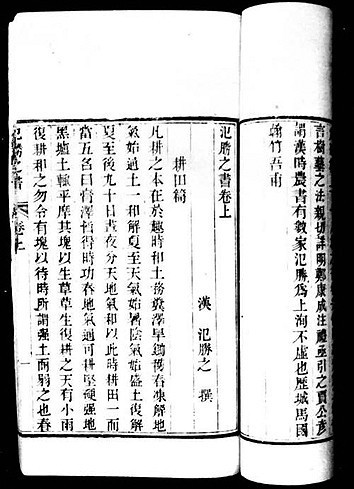 言樹藝之法親切詳明鄭康成注禮亟引之賈公彥
謂漢時農書有數家氾勝爲上洵不虛也歷城馬國
翰竹吾甫
氾勝之書卷上
漢 氾勝之 撰
耕田篇
凡耕之本在於趣時和土務糞澤早鋤穫春凍解地
氣始通土一和解夏至天氣始暑陰氣始盛土復解
夏至後九十日晝夜分天地氣和以此時耕田一而
當五名曰膏澤皆得時功春地氣通可耕堅硬強地
黑壚土輒平摩其塊以生草草生復耕之天有小雨
復耕和之勿令有塊以待時所謂強土而弱之也春
氾勝之書
卷上
一